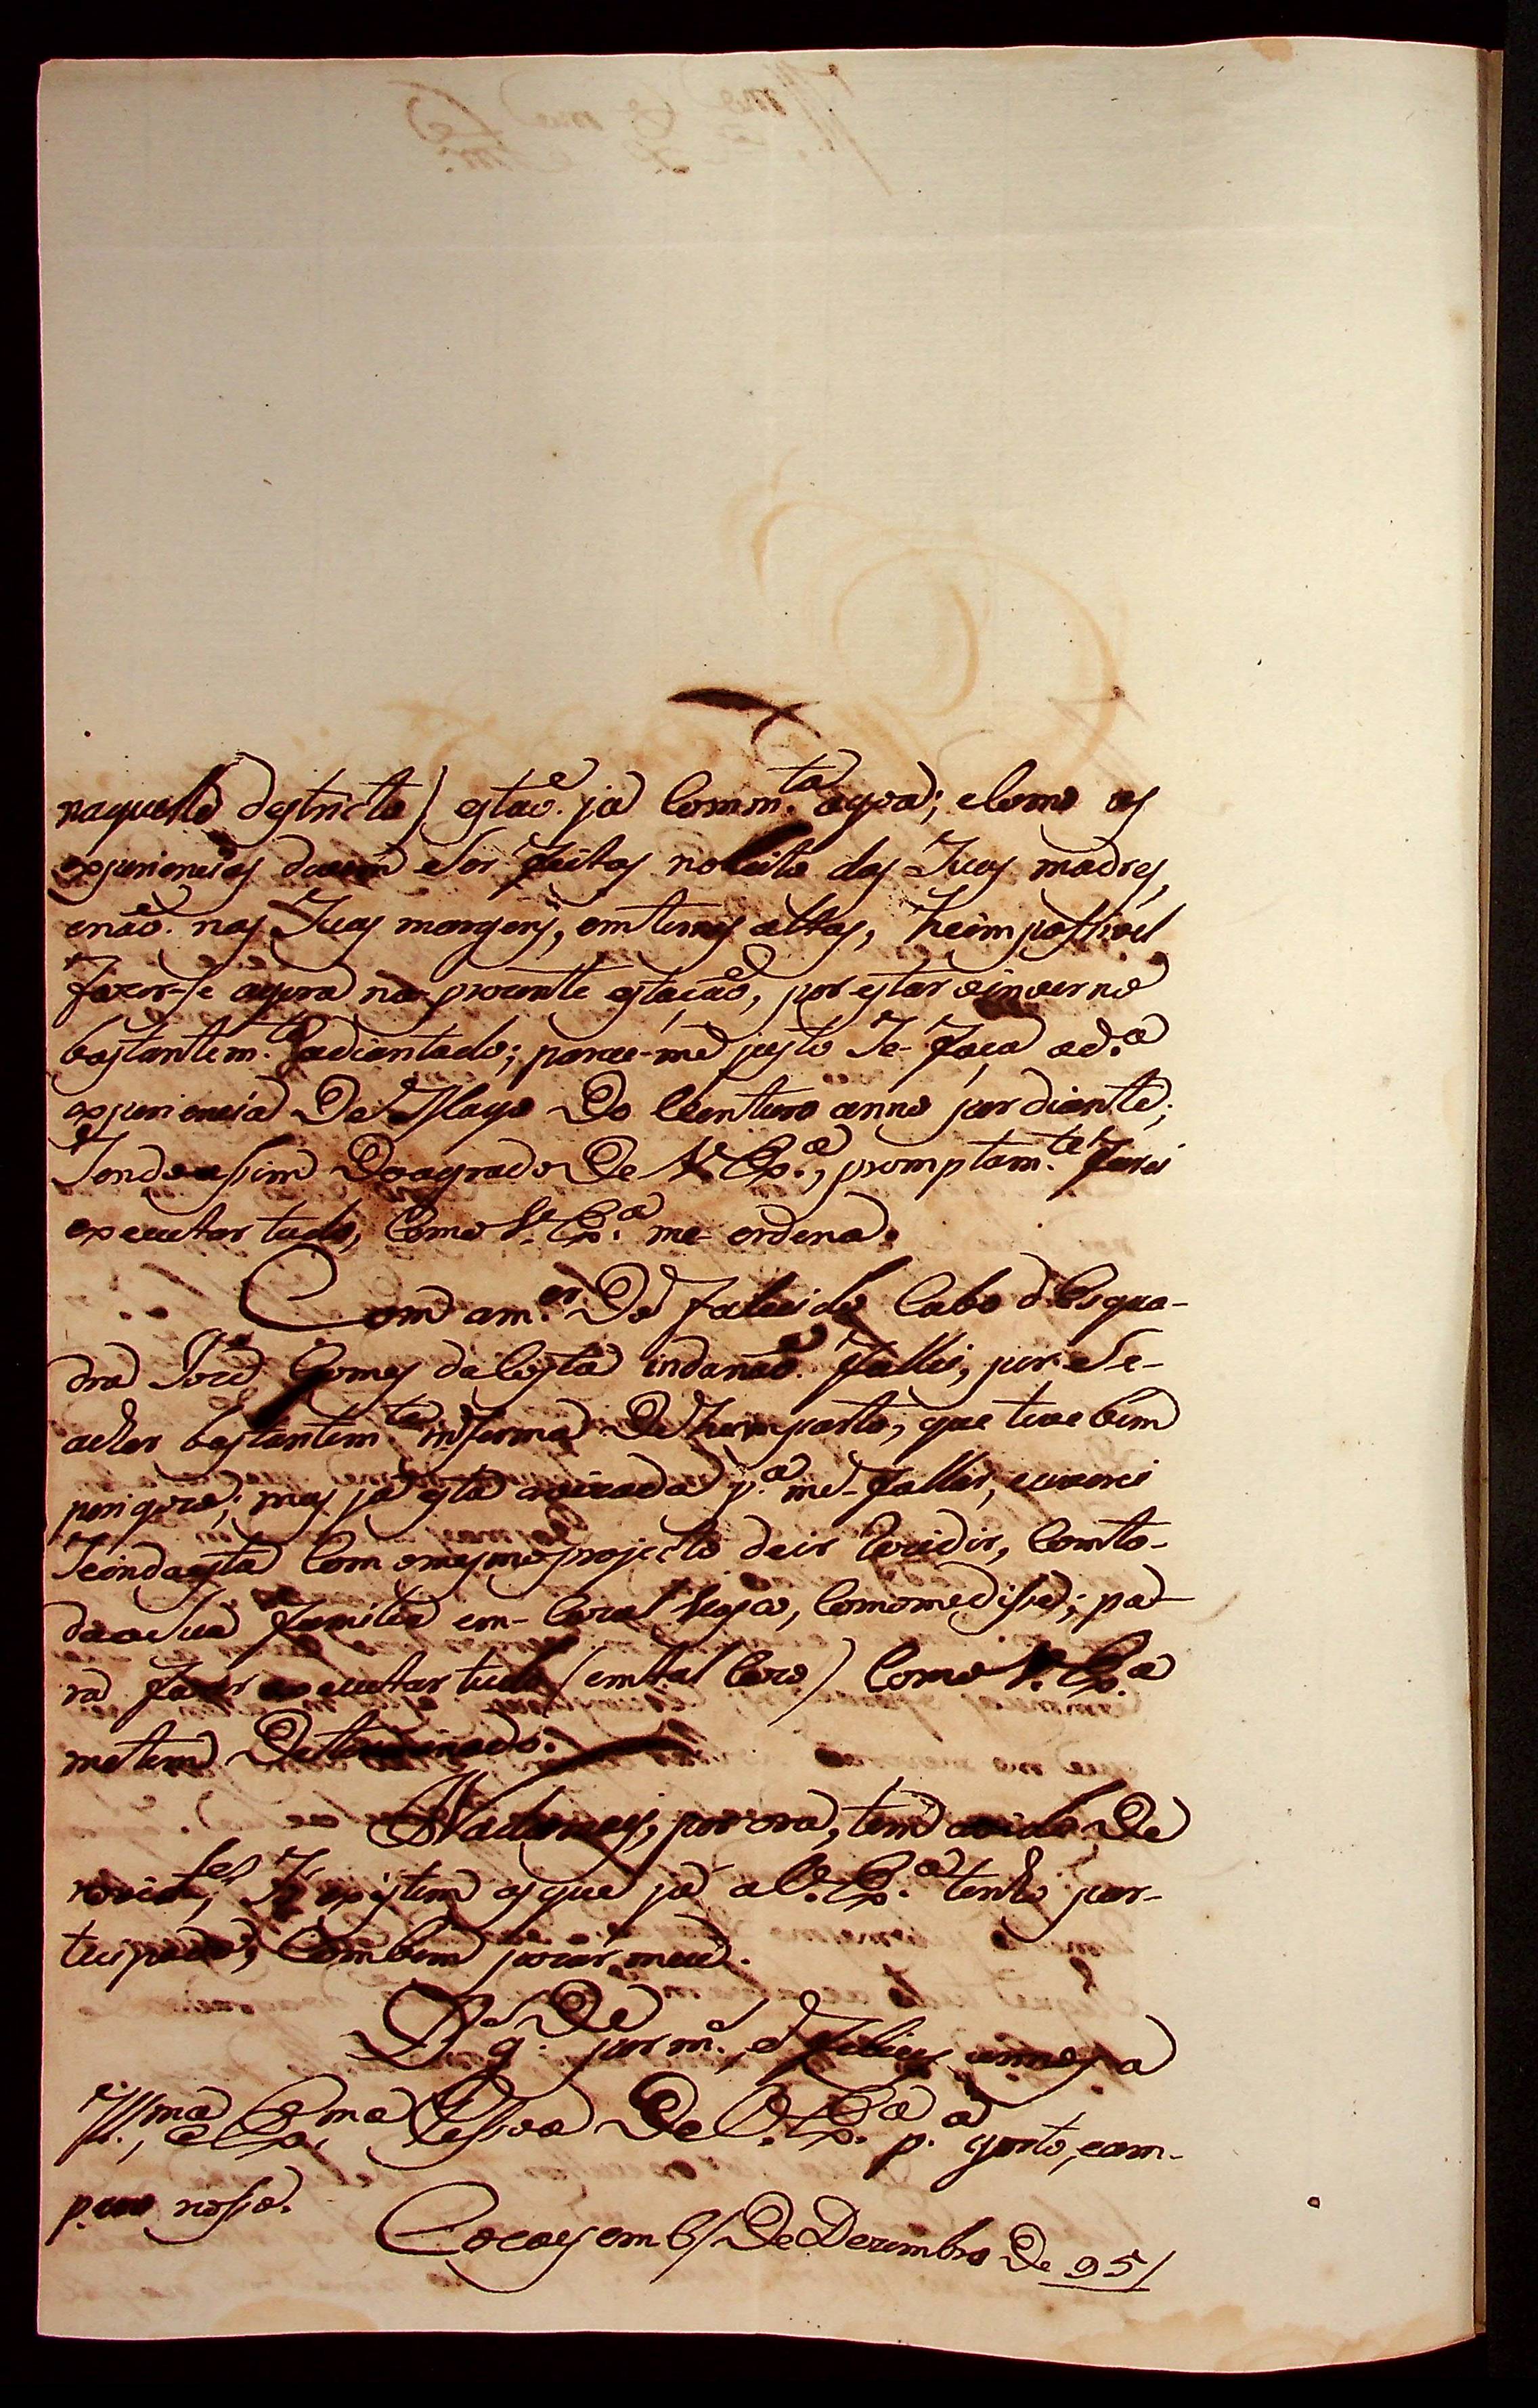 naquelle destricto) estaõ. já Comm.ta agoa; e Como as
experiencias devem Ser feitas noleito das Suas madres,
enaõ. nas Suas margens, emterras altas, heimpossivel
fazer-se agora na prezente estaçaõ, por estar oinverno
bastantem.te adiantado; parece-me justo Se-faça ad.a
experiencia De Mayo Do Venturo anno por diante;
Sendo assim Do agrado De V. Ex.a, promptam.te farei
executar tudo, Como V. Ex.a me-ordena.
Com am.er Do falecido Cabo d'Esqua-
dra José Gomes da Costa indanaõ. fallei, por Se-
achar bastantem.te inferma De hum parto, que teve bem
perigozo; mas já está avizada p.a me-fallar, e
Seindaestá Com omesmo projecto deir rezidir, Comto-
daaSua familia em- Coral , Comomedisse; pa-
ra fazer executar tudo (emtal Cazo) Como V. Ex.a
metem Determinado.
Nadamais, por ora, tem avido De
novid.es, Só existem asque já aV. Ex.a tenho par-
ticipado, Combem pezar meu.
D.s g.De por m.s, e felices annos a
Ill.ma, e Ex.ma Pessoa De V. Ex.a p.a gosto, eam-
paro nosso.
Cocaes em 6/ De Dezembro De 95/